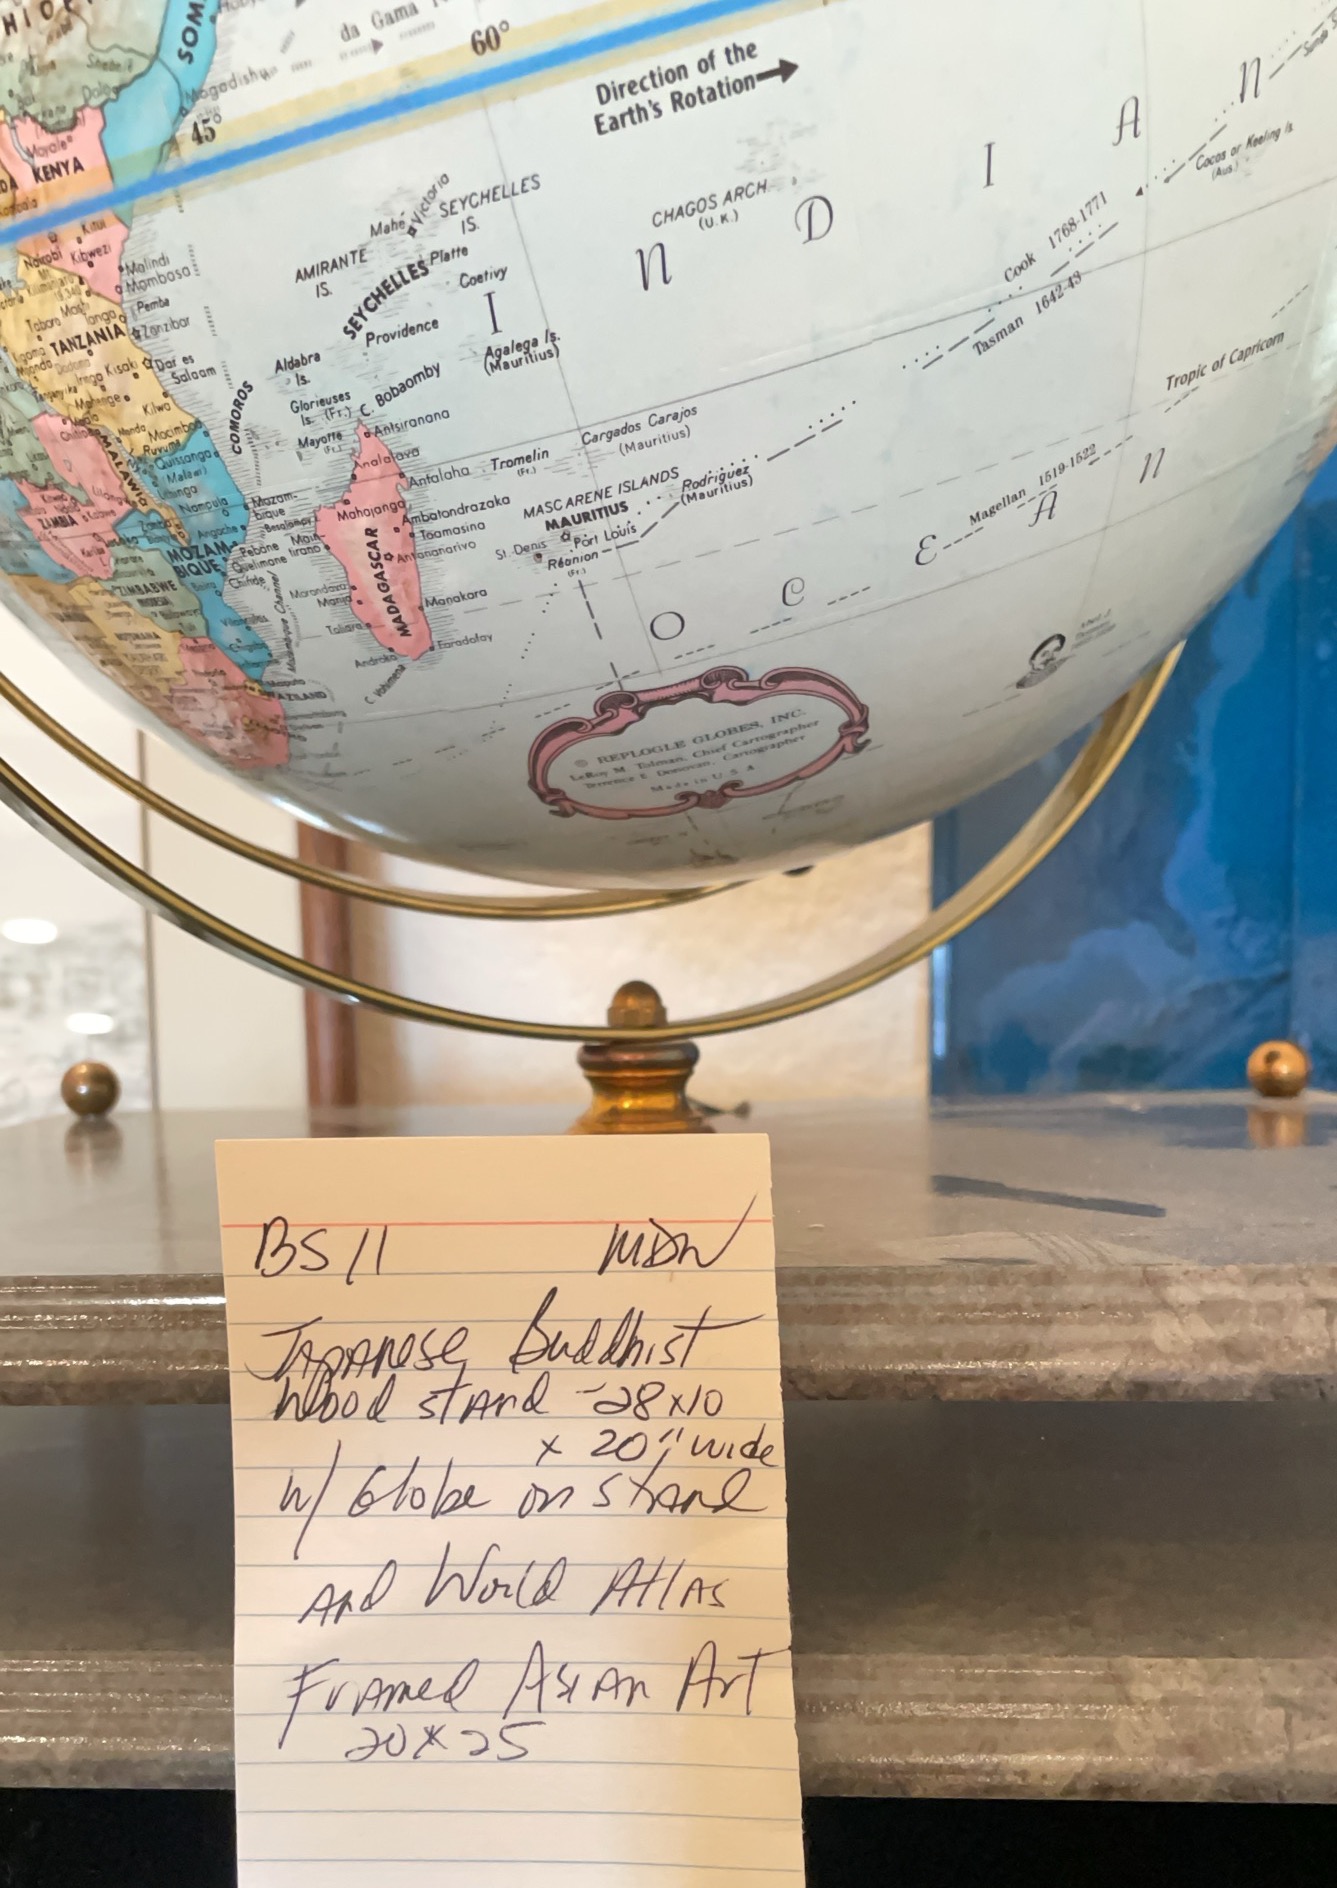 da Gama
60°
45°
Mogadishu
Direction of the
Earth's Rotation
KENYA
Kitui
Nairobi
Kibwezi
Malindi
Mombasa
Pemba
Tanga
Zanzibar
TANZANIA
Dar es
Salaam
Kilwa
COMOROS
Mahé
Victoria
SEYCHELLES
IS.
AMIRANTE
IS.
SEYCHELLES
Platte
Coetivy
Providence
Agalega Is.
(Mauritius)
Aldabra
Is.
Glorieuses
Is. (Fr.)
C. Bobaomby
Mayotte
(Fr.)
Antsiranana
Analalava
Antalaha
Tromelin
(Fr.)
Cargados Carajos
(Mauritius)
CHAGOS ARCH.
(U.K.)
I N D I A N
Cocos or Keeling Is.
(Aus.)
Cook 1768-1771
Tasman 1642-43
Tropic of Capricorn
MASCARENE ISLANDS
Rodriguez
(Mauritius)
MAURITIUS
Port Louis
St. Denis
Réunion
(Fr.)
Magellan 1519-1522
O C E A N
MALAWI
ZAMBIA
MOZAM-
BIQUE
ZIMBABWE
Mahajanga
Ambatondrazaka
Toamasina
Antananarivo
MADAGASCAR
Morondava
Manja
Manakara
Toliara
Faradofay
Androka
© REPLOGLE GLOBES, INC.
LeRoy M. Tolman, Chief Cartographer
Terrence E. Donovan, Cartographer
Made in U.S.A.
BS11 MDW
Japanese Buddhist
Wood stand - 28x10
x 20" wide
w/ Globe on stand
and World Atlas
Framed Asian Art
20x25